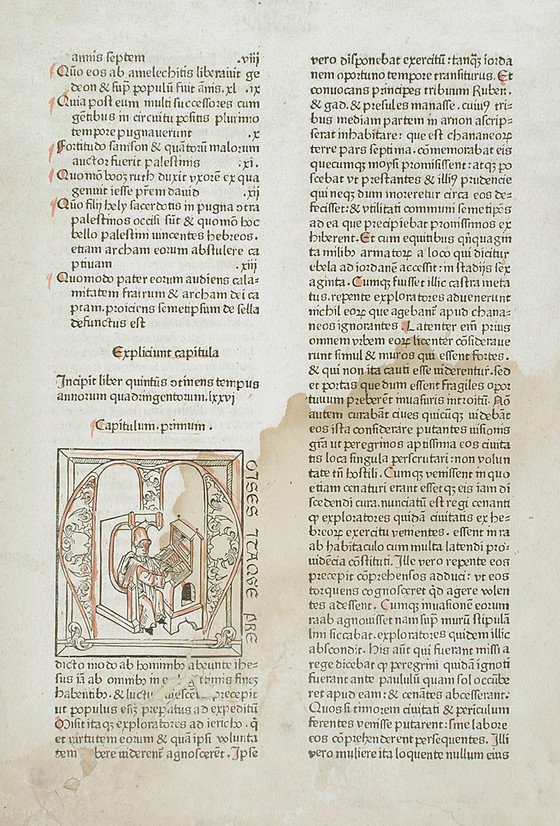 annis septem .viii
Quo eos ab amelechitis liberauit ge
deon & sup populũ fuit ãnis. xl .ix
Quia post eum multi successores cum
gẽtibus in circuitu positis plurimo
tempore pugnauerunt .x
Fortitudo samson & quãtorũ malorum
auctor fuerit palestinis .xi.
Quomõ booz ruth duxit vxorẽ ex qua
genuit iesse pr̃em dauid .xii
Quo filij hely sacerdotis in pugna ɔtra
palestinos occisi sũt & quomõ hoc
bello palestini vincentes hebreos.
etiam archam eorum abstulere ca
ptiuam .xiii
Quomodo pater eorum audiens cala-
mitatem fratrum & archam dei ca
ptam. proiciens semetipsum de sella
defunctus est
Expliciunt capitula
Incipit liber quintus ɔtinens tempus
annorum quadringentorum.lxxvi
Capitulum. primum.
M
OYSES ITAQVE PRE
dicto modo ab hominibꝫ abeunte ihe-
sus iã ab omnibꝫ in
habentibꝫ. & luctu precepit
ut populus eẽt p̃paratus ad expeditũ
Misit itaqꝫ exploratores ad iericho. q̃
et virtutem eorum & quã ipsi voluntа
tem uiderent agnoscerẽt. Ipse
vero disponebat exercitũ: tanq̃ꝫ iorda
nem oportuno tempore transiturus. Et
conuocans principes tribuum Ruben.
& gad. & presules manasse. cuiꝰ tri-
bus mediam partem in arnon ascrip-
serat inhabitare: que est chananeoꝝ
terre pars septima. cõmemorabat eis
quecumqꝫ moysi promisissent: atqꝫ po
scebat vr prestantes & illiꝰ prudencie
qui neqꝫ dum moreretur circa eos de-
fecisset: & vtilitati communi semetip̃os
ad ea que precipiebat promissimos ex
hiberent. Et cum equitibus q̃nquagin
ta milibꝫ armatoꝝ a loco qui dicitur
ebela ad iordanẽ accessit: in stadijs sex
aginta. Cumqꝫ fuisset illic castra meta
tus. repente exploratores aduenerunt
nichil eoꝝ que agebanť apud chana-
neos ignorantes Latenter eiɱ̃ prius
omnem vrbem eoꝝ licenter cõsideraue
runt simul & muros qui essent fortes.
& qui non ita cauti esse viderentur. sed
et portas que dum essent fragiles opor
tuuum preberẽt inuasuris introitũ. Nõ
autem curabãt ciues quicũqꝫ videbãt
eos ista considerare putantes visionis
gr̃a ut peregrinos aptissima eos ciuita
tis loca singula perscrutari: non volun
tate tñ hostili. Cumqꝫ venissent in quo
etiam cenaturi erant essetqꝫ eis iam di
scedendi cura. nunciatũ est regi cenanti
qꝫ exploratores quidã ciuitatis ex he-
breoꝝ exercitu venientes. essent in ra
ab habitaculo cum multa latendi pro-
uidẽcia cõstituti. Ille vero repente eos
precepit cõprehensos adduci: vt eos
torquens cognosceret qd̃ agere volen
tes adessent. Cumqꝫ inuasionẽ eorum
raab agnouisset nam suṗ murũ stipulã
lini siccabat. exploratores quidem illic
abscondit. His aũt qui fuerant missi a
rege dicebat qꝫ peregrini quidã ignoti
fuerant ante paululũ quam sol occube
ret apud eam: & cenãtes abcesserant.
Quos si timorem ciuitati & periculum
ferentes venisse putarent: sine labore
eos cõprẽhenderent persequentes. Illi
vero muliere ita loquente nullum eius